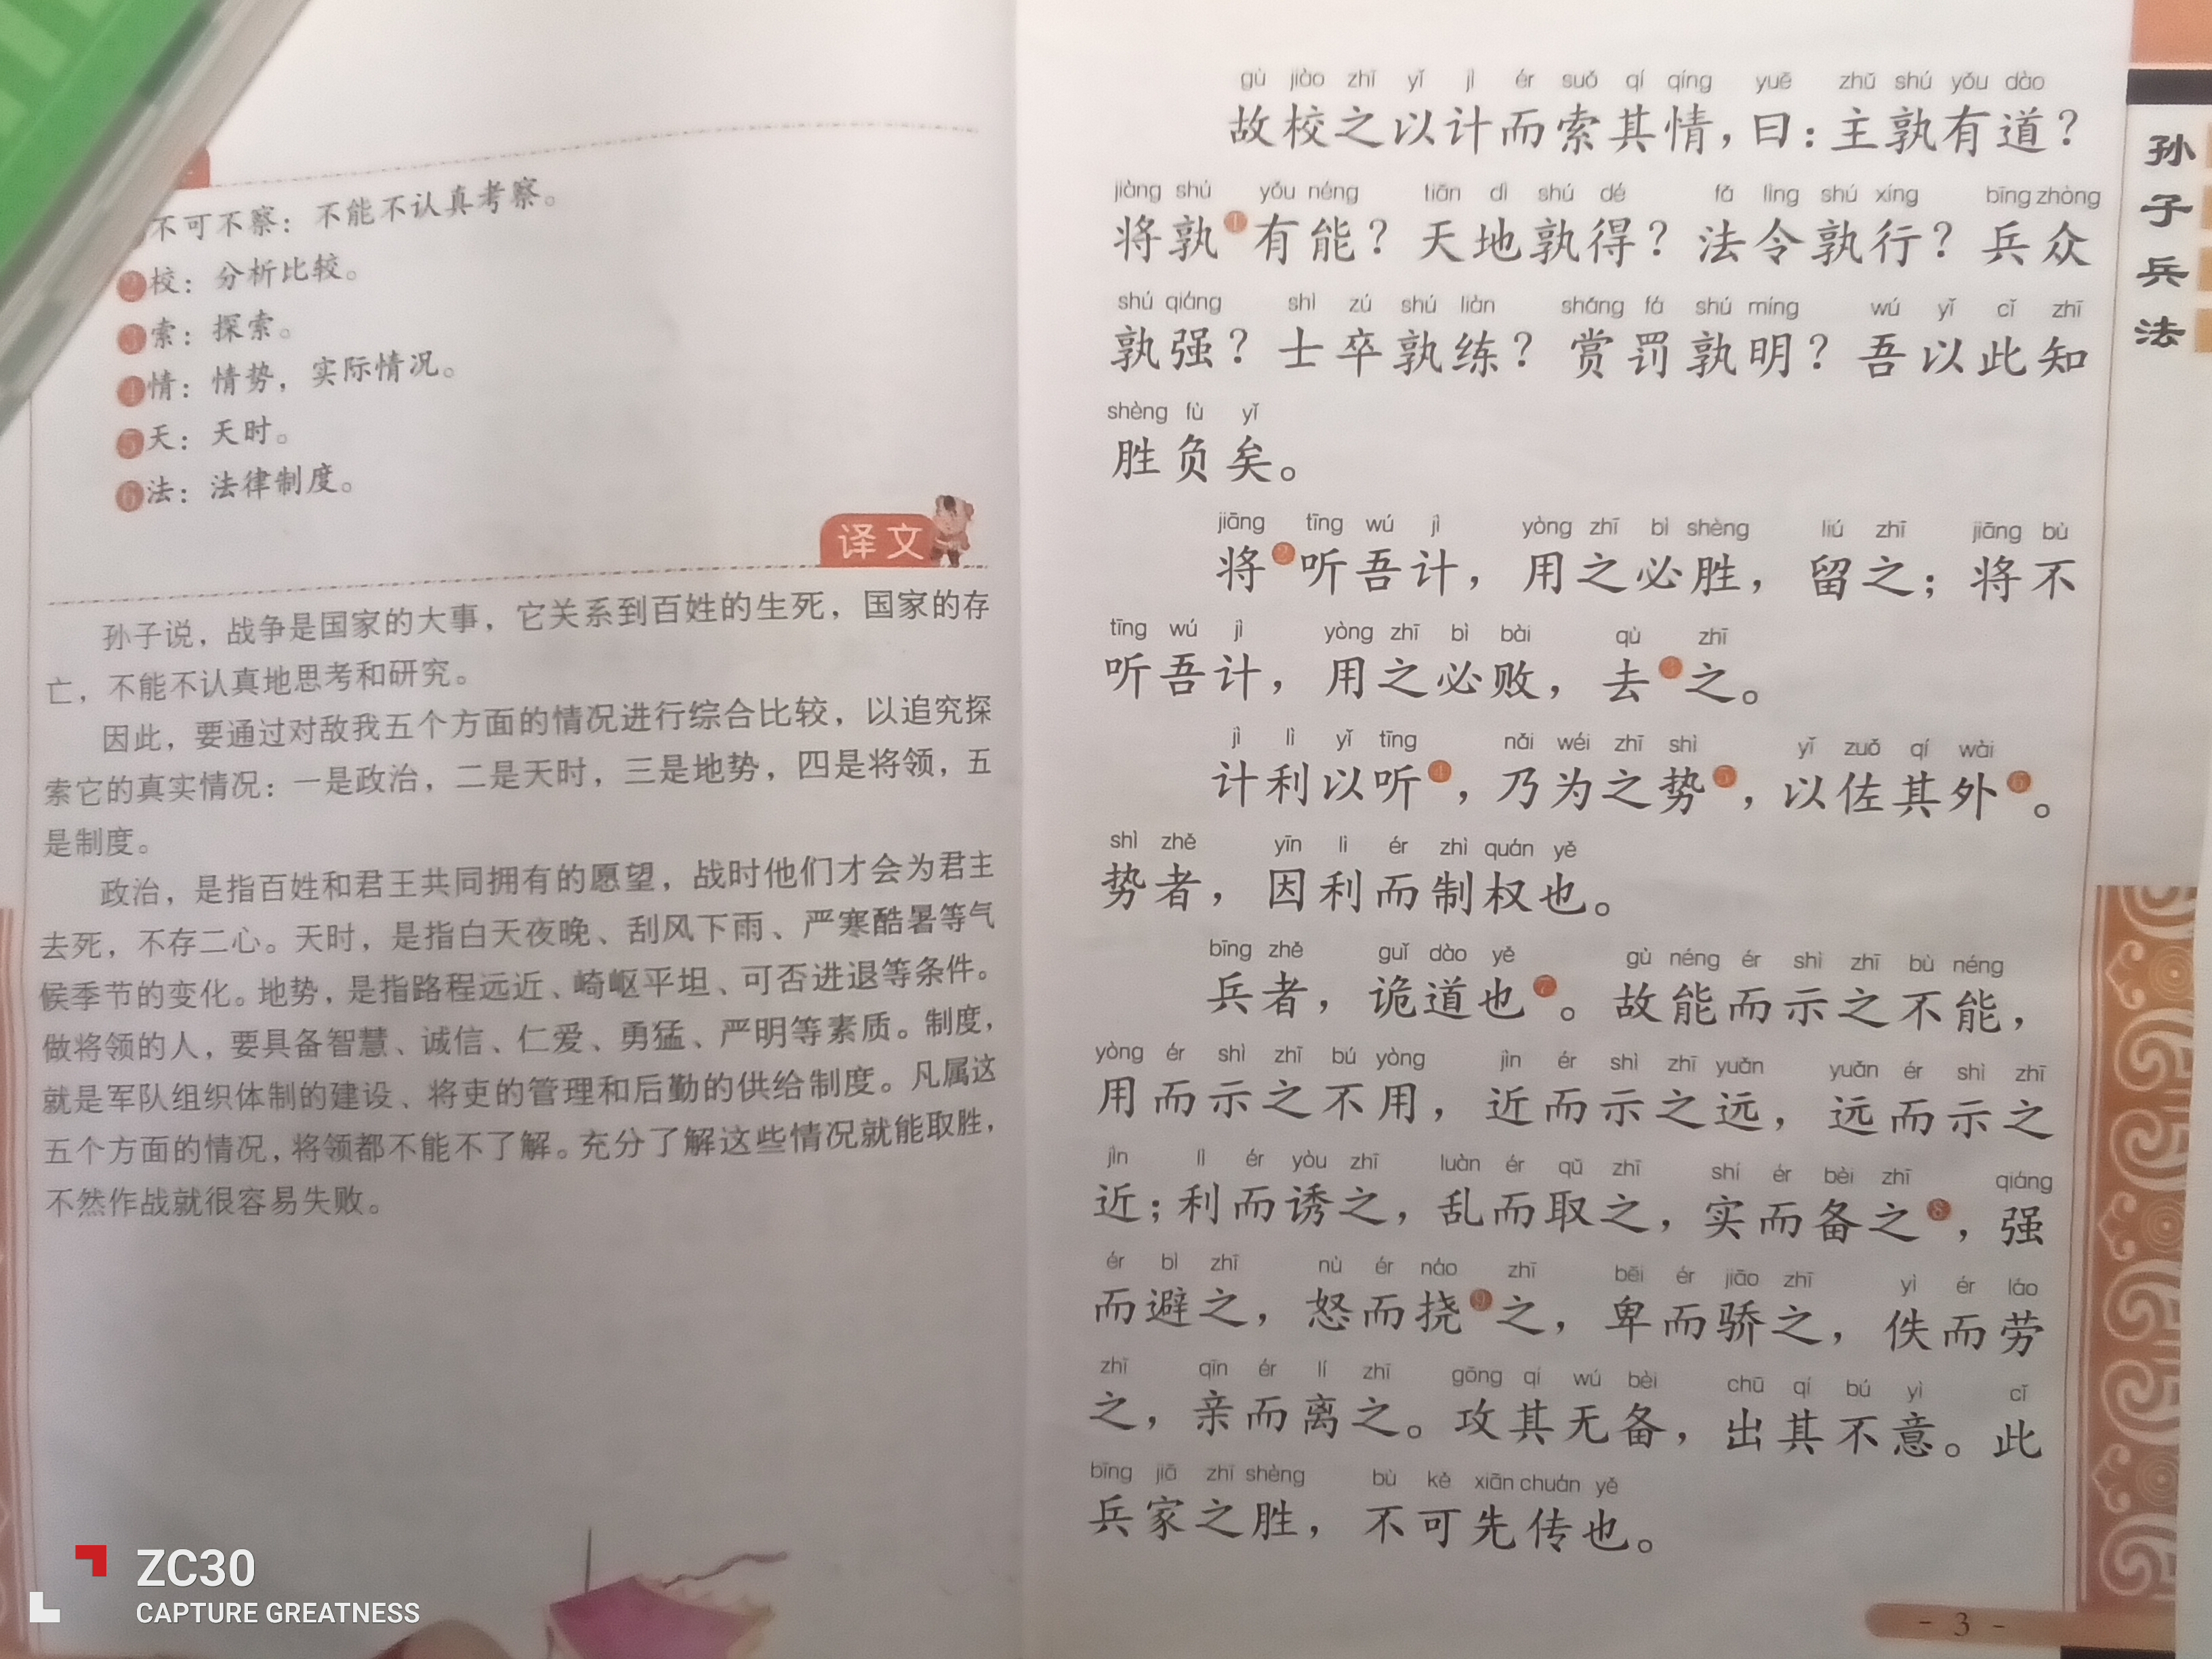 不可不察：不能不认真考察。
2校：分析比较。
3索：探索。
4情：情势，实际情况。
5天：天时。
6法：法律制度。
译文
孙子说，战争是国家的大事，它关系到百姓的生死，国家的存
亡，不能不认真地思考和研究。
因此，要通过对敌我五个方面的情况进行综合比较，以追究探
索它的真实情况：一是政治，二是天时，三是地势，四是将领，五
是制度。
政治，是指百姓和君王共同拥有的愿望，战时他们才会为君主
去死，不存二心。天时，是指白天夜晚、刮风下雨、严寒酷暑等气
候季节的变化。地势，是指路程远近、崎岖平坦、可否进退等条件。
做将领的人，要具备智慧、诚信、仁爱、勇猛、严明等素质。制度，
就是军队组织体制的建设、将吏的管理和后勤的供给制度。凡属这
五个方面的情况，将领都不能不了解。充分了解这些情况就能取胜，
不然作战就很容易失败。
ZC30
CAPTURE GREATNESS
gù jiào zhī yǐ jì ér suǒ qí qíng yuē zhǔ shú yǒu dào
故校之以计而索其情，曰：主孰有道？
jiàng shú yǒu néng tiān dì shú dé fǎ lìng shú xíng bīng zhòng
将孰1有能？天地孰得？法令孰行？兵众
shú qiáng shì zú shú liàn shǎng fá shú míng wú yǐ cǐ zhī
孰强？士卒孰练？赏罚孰明？吾以此知
shèng fù yǐ
胜负矣。
jiāng tīng wú jì yòng zhī bì shèng liú zhī jiāng bù
将2听吾计，用之必胜，留之；将不
tīng wú jì yòng zhī bì bài qù zhī
听吾计，用之必败，去3之。
jì lì yǐ tīng nǎi wéi zhī shì yǐ zuǒ qí wài
计利以听4，乃为之势5，以佐其外6。
shì zhě yīn lì ér zhì quán yě
势者，因利而制权也。
bīng zhě guǐ dào yě gù néng ér shì zhī bù néng
兵者，诡道也7。故能而示之不能，
yòng ér shì zhī bú yòng jìn ér shì zhī yuǎn yuǎn ér shì zhī
用而示之不用，近而示之远，远而示之
jìn lì ér yòu zhī luàn ér qǔ zhī shí ér bèi zhī qiáng
近；利而诱之，乱而取之，实而备之8，强
ér bì zhī nù ér náo zhī bēi ér jiāo zhī yì ér láo
而避之，怒而挠9之，卑而骄之，佚而劳
zhī qīn ér lí zhī gōng qí wú bèi chū qí bú yì cǐ
之，亲而离之。攻其无备，出其不意。此
bīng jiā zhī shèng bù kě xiān chuán yě
兵家之胜，不可先传也。
- 3 -
孙子兵法